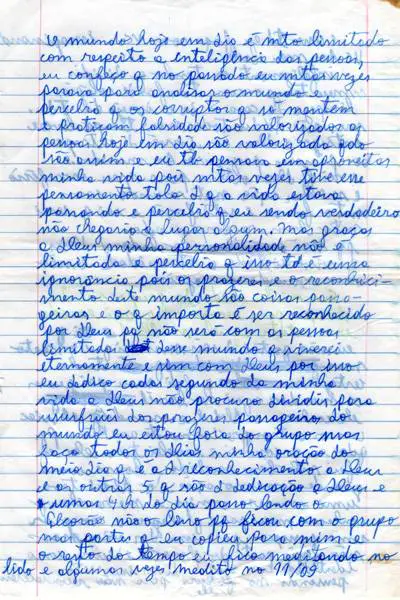 O mundo hoje em dia é mto limitado
com respeito a inteligência das pessoas,
eu confeço q no passado eu mtas vezes
parava para analisar o mundo e
percebia q os corruptos q só mentem
e praticam falsidade são valorizados as
pessoas hoje em dia são valorizada qdo
são assim e eu tb pensava em aproveitar
minha vida pois mtas vezes tive esse
pensamento tolo d q a vida estava
passando e percebia q eu sendo verdadeiro
não chegaria a lugar algum. Mas graças
a Deus minha personalidade não é
limitada e percebia q isso td é uma
ignorância pois os prazeres e o reconheci-
mento deste mundo são coisas passa-
geiras e o q importa é ser reconhecido
por Deus pq não será com as pessoas
limitadas desse mundo q viverei
eternamente e sim com Deus por isso
eu dedico cada segundo da minha
vida a Deus não procuro dividir para
usufruir dos prazeres passageiro do
mundo eu estou fora do grupo mas
faço todos os dias minha oração do
meio dia q é a d reconhecimento a Deus
e as outras 5 q são d dedicação a Deus e
umas 4 h do dia passo lendo o
Alcorão não o livro pq ficou com o grupo
mas partes q eu copiei para mim e
o resto do tempo eu fico meditando no
lido e algumas vezes medito no 11/09